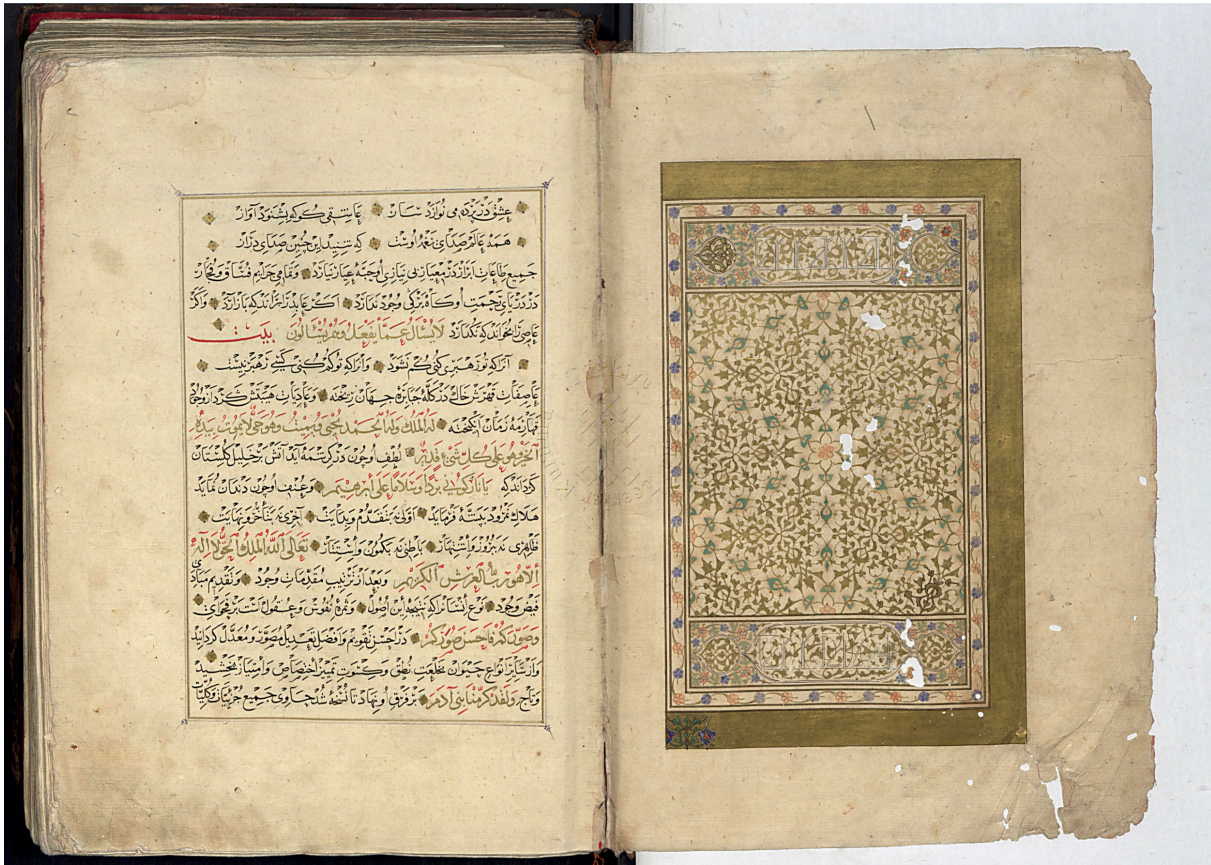 عشق در پرده می نوازد ساز عاشقی کو که بشنود آواز
همه عالم صدای نغمهٔ اوست که شنید این چنین صدای دراز
جمیع طاعات ابرار در معیار بی نیازی او حبهٔ عیار نیارد و تمامی جرایم فساق و فجار
در دریای رحمت او کاه برگی وجود ندارد اگر عابد را براند که یارد و اگر
عاصی را بخواند که نگذارد لا یسأل عما یفعل وهم یسألون بیت
آنرا که تو رهبری کنی گم نشود وانرا که تو گم کنی کسی رهبر نیست
عاصفات قهرش خاک در کلهٔ جبابرهٔ جهان ریخته وعادیات هیبتش گرد از وجود
قیاصرهٔ زمان انگیخته له الملک وله الحمد یحیی ویمیت وهو حی لا یموت بیده
الخیر وهو علی کل شیء قدیر لطف او چون در کرشمه آید آتش بر خلیل گلستان
گرداند که یا نار کونی بردا وسلاما علی ابرهیم وعنف او چون دندان نماید
هلاک نمرود به پشهٔ فرماید اولی نه بتقدم وبدایت آخری نه بتأخر ونهایت
ظاهری نه ببروز واشتهار باطنی نه بکمون واستتار تعالی الله الملک الحق لا اله
الا هو رب العرش الکریم وبعد از ترتیب مقدمات وجود وتقدیم مبادی
فیض وجود نوع انسانرا که نتیجهٔ این اصول وثمرهٔ نفوس وعقول است بر فحوای
وصورکم فاحسن صورکم در احسن تقویم وافضل تعدیل مصور ومعدل گردانید
واز سایر انواع حیوان بخلعت نطق وکسوت تمییز اختصاص وامتیاز بخشید
وتاج ولقد کرمنا بنی آدم بر فرق او نهاد تا نسخهٔ شد حاوی جمیع جزئیات وکلیات